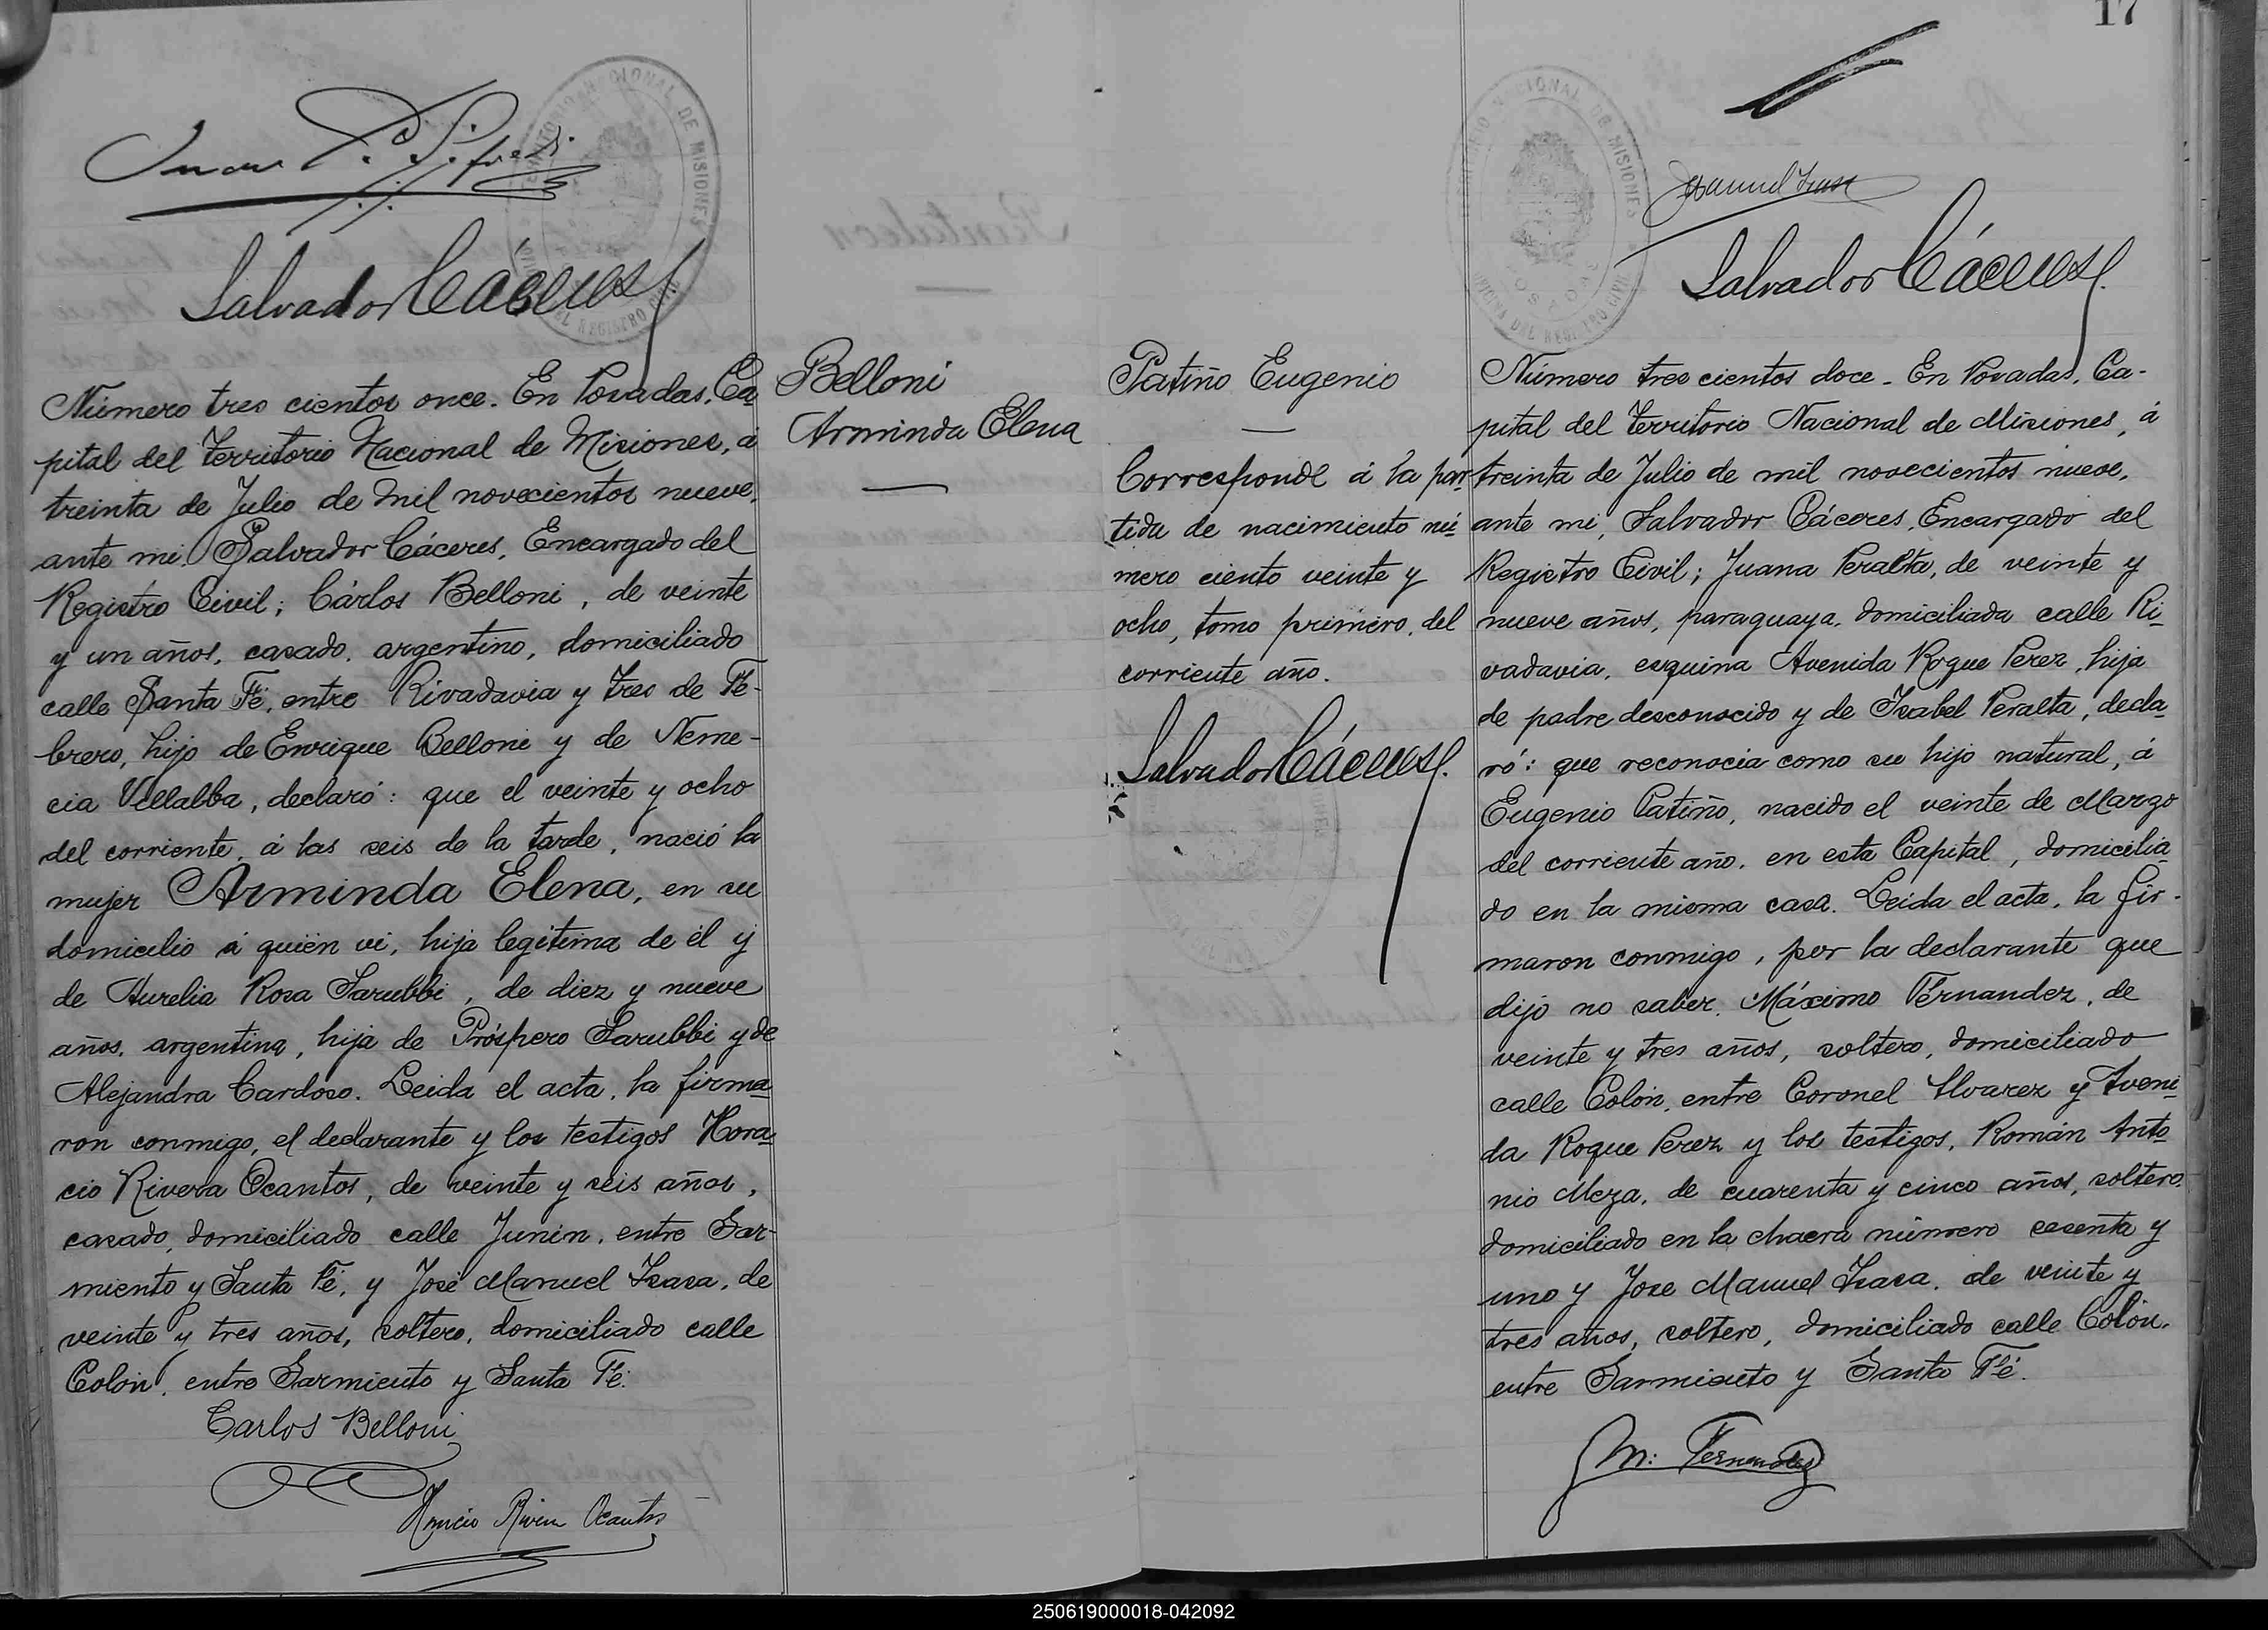 17
Salvador Cáceres
Número tres cientos once. En Posadas, Ca
pital del Territorio Nacional de Misiones, á
treinta de Julio de mil novecientos nueve,
ante mi, Salvador Cáceres, Encargado del
Registro Civil; Cárlos Belloni, de veinte
y un años, casado, argentino, domiciliado
calle Santa Fé, entre Rivadavia y Tres de Fe-
brero, hijo de Enrique Belloni y de Neme-
cia Villalba, declaró: que el veinte y ocho
del corriente, á las seis de la tarde, nació la
mujer Arminda Elena, en su
domicilio á quién vi, hija legítima de él y
de Aurelia Rosa Sarubbi, de diez y nueve
años, argentina, hija de Próspero Sarubbi y de
Alejandra Cardoso. Leida el acta, la firma
ron conmigo, el declarante y los testigos Hora
cio Rivera Ocantos, de veinte y seis años,
casado, domiciliado calle Junin, entre Sar-
miento y Santa Fé, y José Manuel Isasa, de
veinte y tres años, soltero, domiciliado calle
Colón, entre Sarmiento y Santa Fé.
Carlos Belloni
Horacio Rivera Ocantos
Belloni
Arminda Elena
Patiño Eugenio
Corresponde á la par
tida de nacimiento nú
mero ciento veinte y
ocho, tomo primero, del
corriente año.
Salvador Cáceres
Manuel Isasa
Salvador Cáceres
Número tres cientos doce. En Posadas, Ca-
pital del Territorio Nacional de Misiones, á
treinta de Julio de mil novecientos nueve,
ante mi, Salvador Cáceres, Encargado del
Registro Civil; Juana Peralta, de veinte y
nueve años, paraguaya, domiciliada calle Ri
vadavia, esquina Avenida Roque Perez, hija
de padre desconocido y de Isabel Peralta, decla
ró: que reconocia como su hijo natural, á
Eugenio Patiño, nacido el veinte de Marzo
del corriente año, en esta Capital, domicilia
do en la misma casa. Leida el acta, la fir-
maron conmigo, por la declarante que
dijo no saber, Máximo Fernandez, de
veinte y tres años, soltero, domiciliado
calle Colón, entre Coronel Alvarez y Aveni
da Roque Perez y los testigos, Román Anto
nio Meza, de cuarenta y cinco años, soltero,
domiciliado en la chacra número sesenta y
uno y Jose Manuel Isasa, de veinte y
tres años, soltero, domiciliado calle Colón,
entre Sarmiento y Santa Fé.
M. Fernandez
250619000018-042092